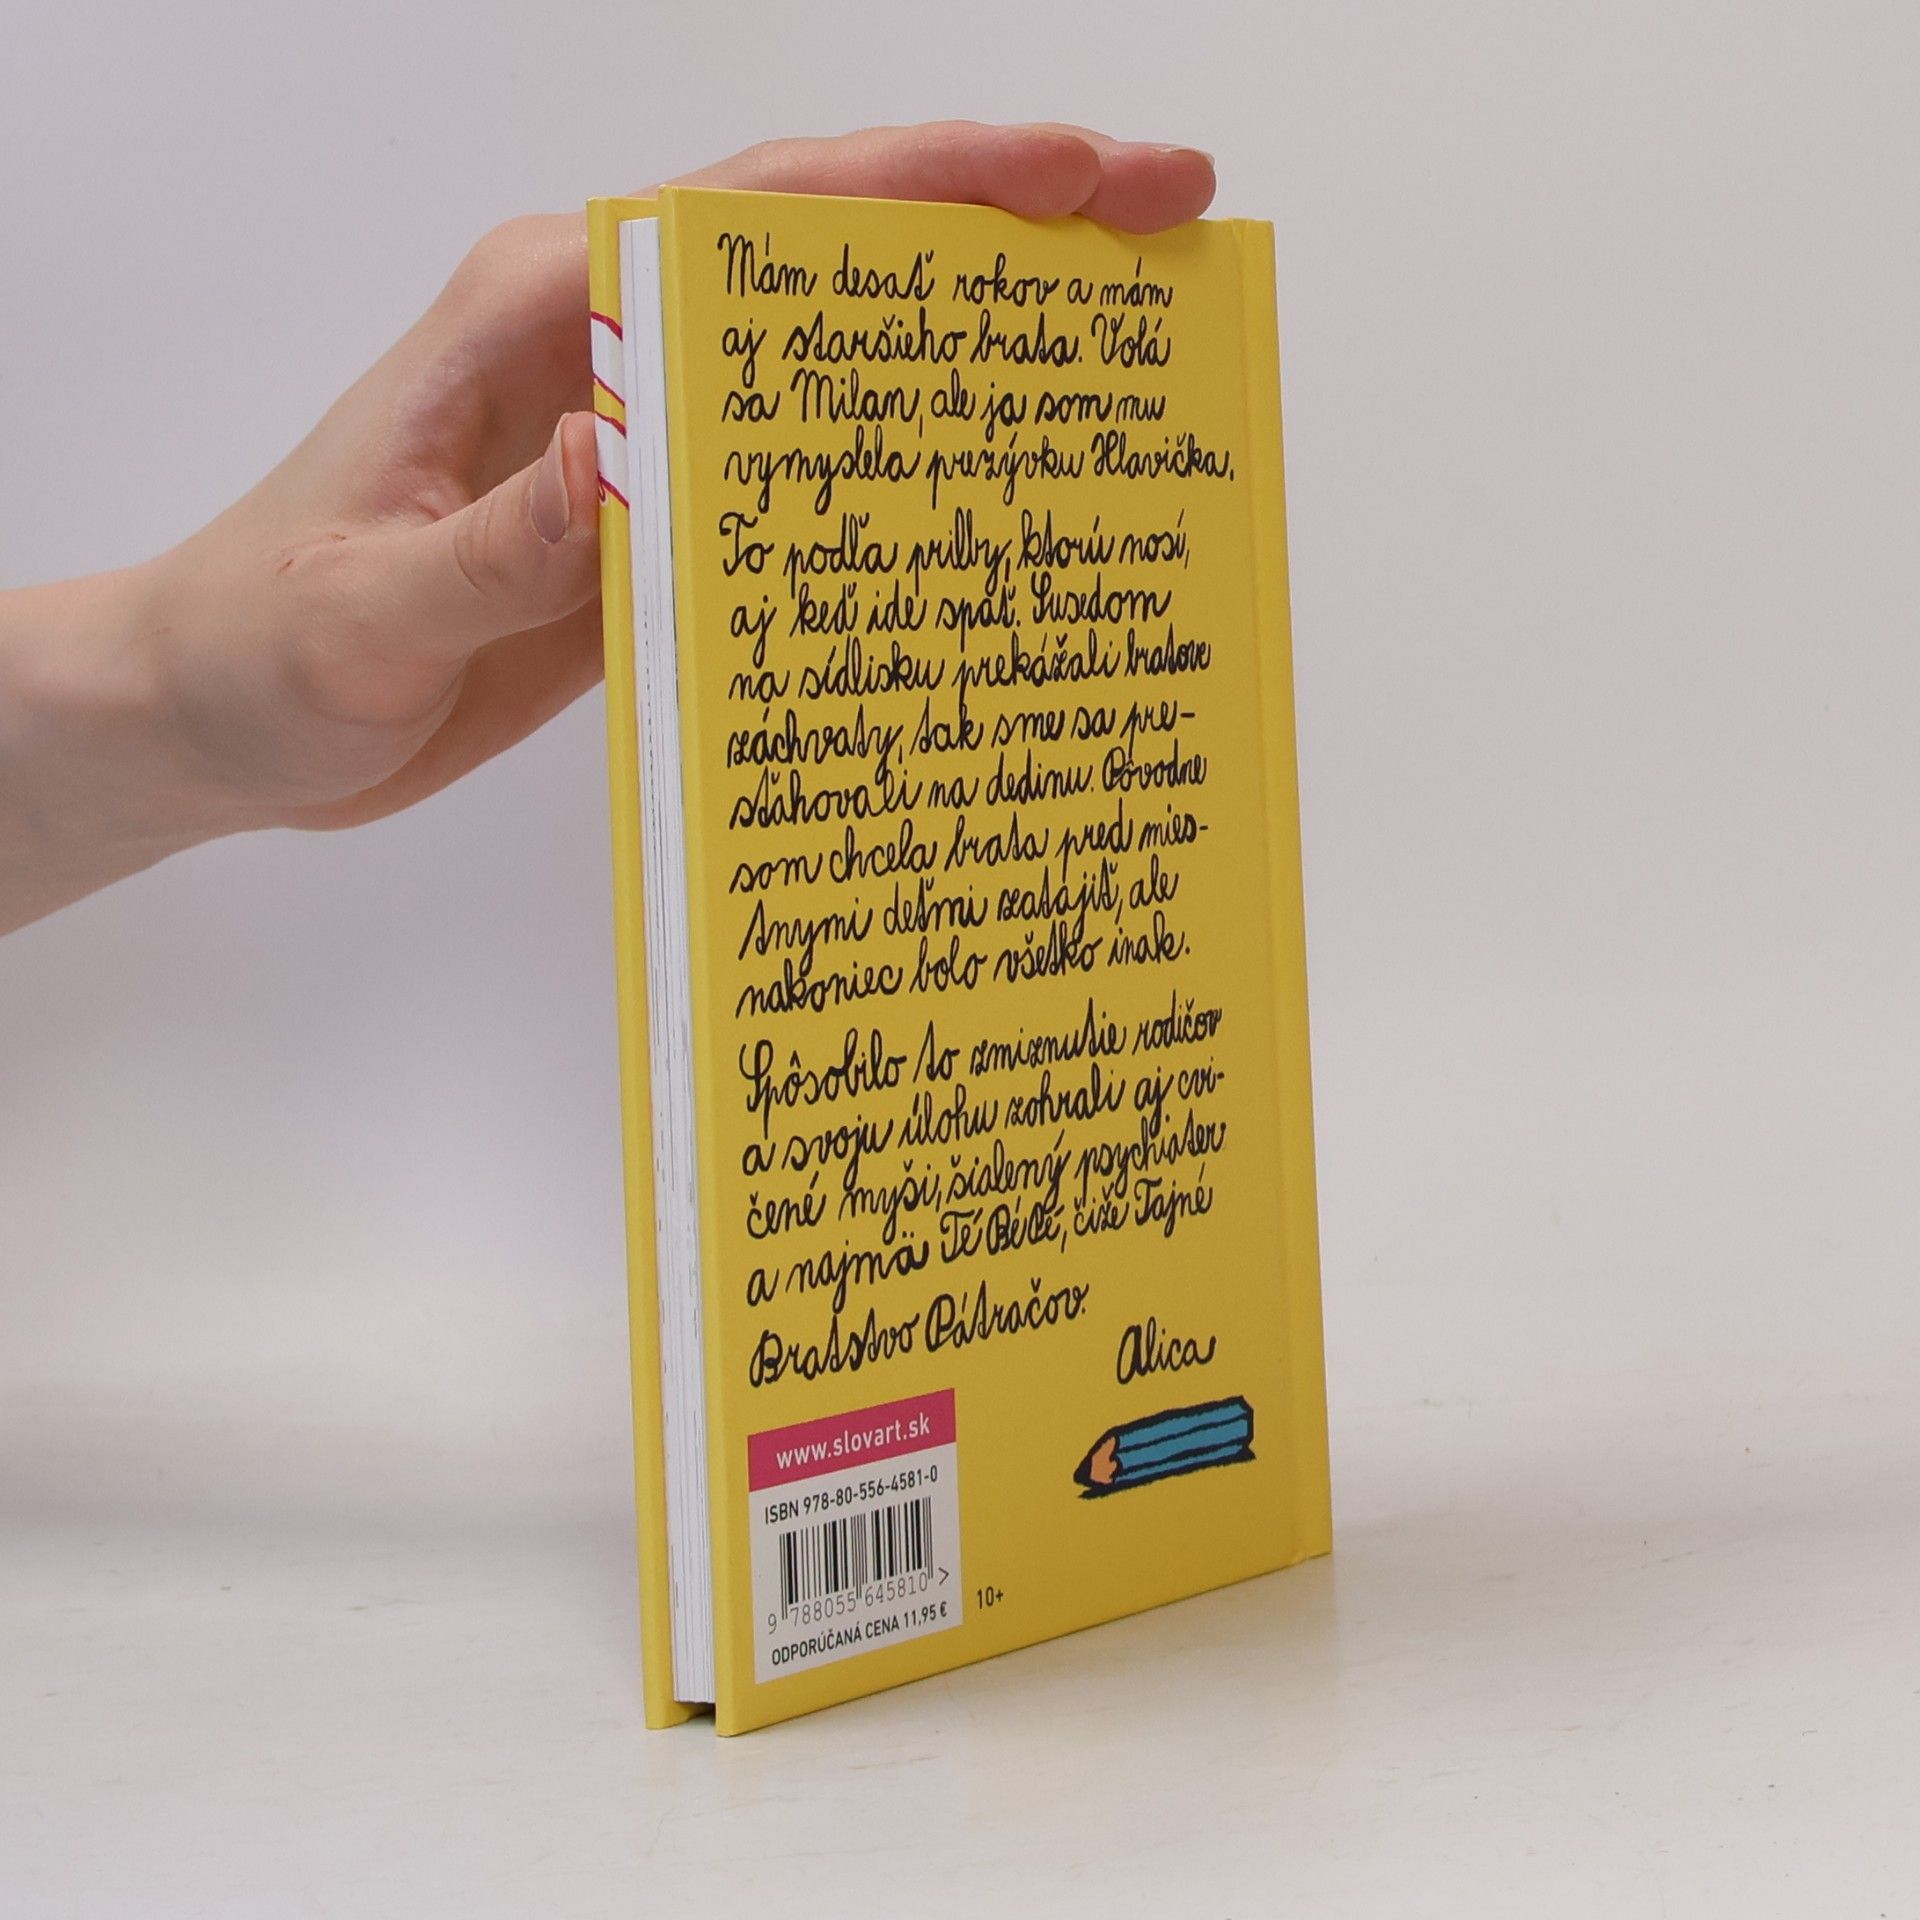 Mám desať rokov a mám
aj staršieho brata. Volá
sa Milan, ale ja som mu
vymyslela prezývku Hlavička.
To podľa prilby, ktorú nosí,
aj keď ide spať. Susedom
na sídlisku prekážali bratove
záchvaty, tak sme sa pre-
sťahovali na dedinu. Pôvodne
som chcela brata pred mies-
tnymi deťmi zatajiť, ale
nakoniec bolo všetko inak.
Spôsobilo to zmiznutie rodičov
a svoju úlohu zohrali aj cvi-
čené myši, šialený psychiater
a najmä Té Bé Pé, čiže Tajné
Bratstvo Pátračov.
Alica
www.slovart.sk
ISBN 978-80-556-4581-0
9 788055 645810 >
ODPORÚČANÁ CENA 11,95 €
10+